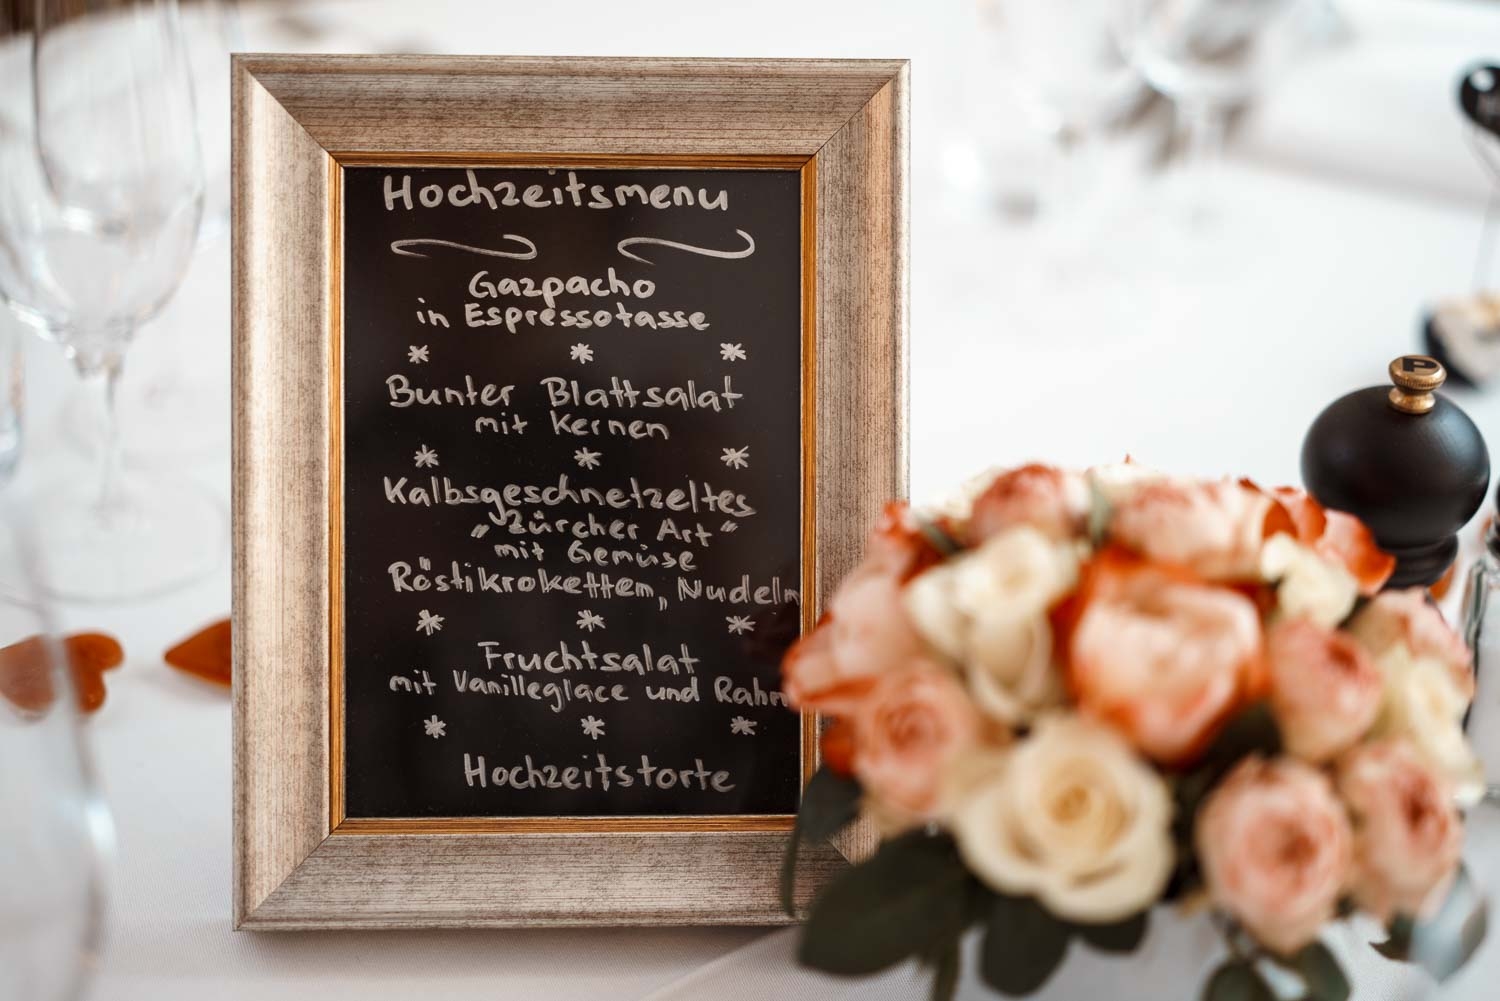 Hochzeitsmenu
Gazpacho
in Espressotasse
* * *
Bunter Blattsalat
mit Kernen
* * *
Kalbsgeschnetzeltes
„Zürcher Art“
mit Gemüse
Röstikroketten, Nudeln
* * *
Fruchtsalat
mit Vanilleglace und Rahm
* * *
Hochzeitstorte
P